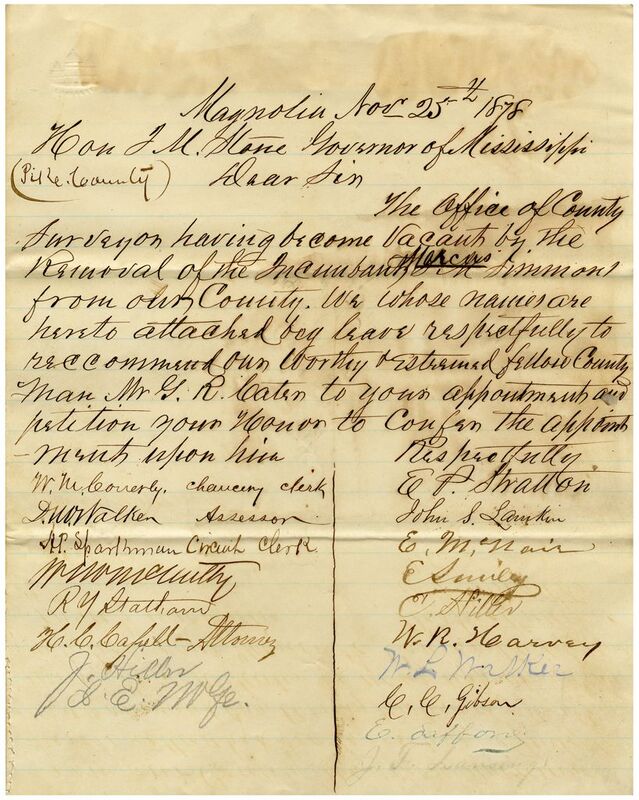 Magnolia Novr 25th 1878
Hon J. M. Stone Governor of Mississippi
(Pike County)
Dear Sir
The Office of County
Surveyor having become Vacant by the
Removal of the Incumbant Marcus Simmons
from our County. We whose names are
hereto attached beg leave respectfully to
reccommend our worthy & esteemed fellow County
man Mr G. R. Cates to your appointment and
petition your Honor to Confer the appoint
-ment upon him
Respectfully
W. M. Conerly, chancery clerk
D. W. Walker Assessor
A. P. Sparkman Circuit Clerk
R Y Statham
H. C. Capell - Attorney
J. Hiller
E P. Stratton
John S. Lamkin
E. McNair
E Smiley
T. Hiller
W. R. Harvey
W L Walker
C. C. Gibson
E.
J.